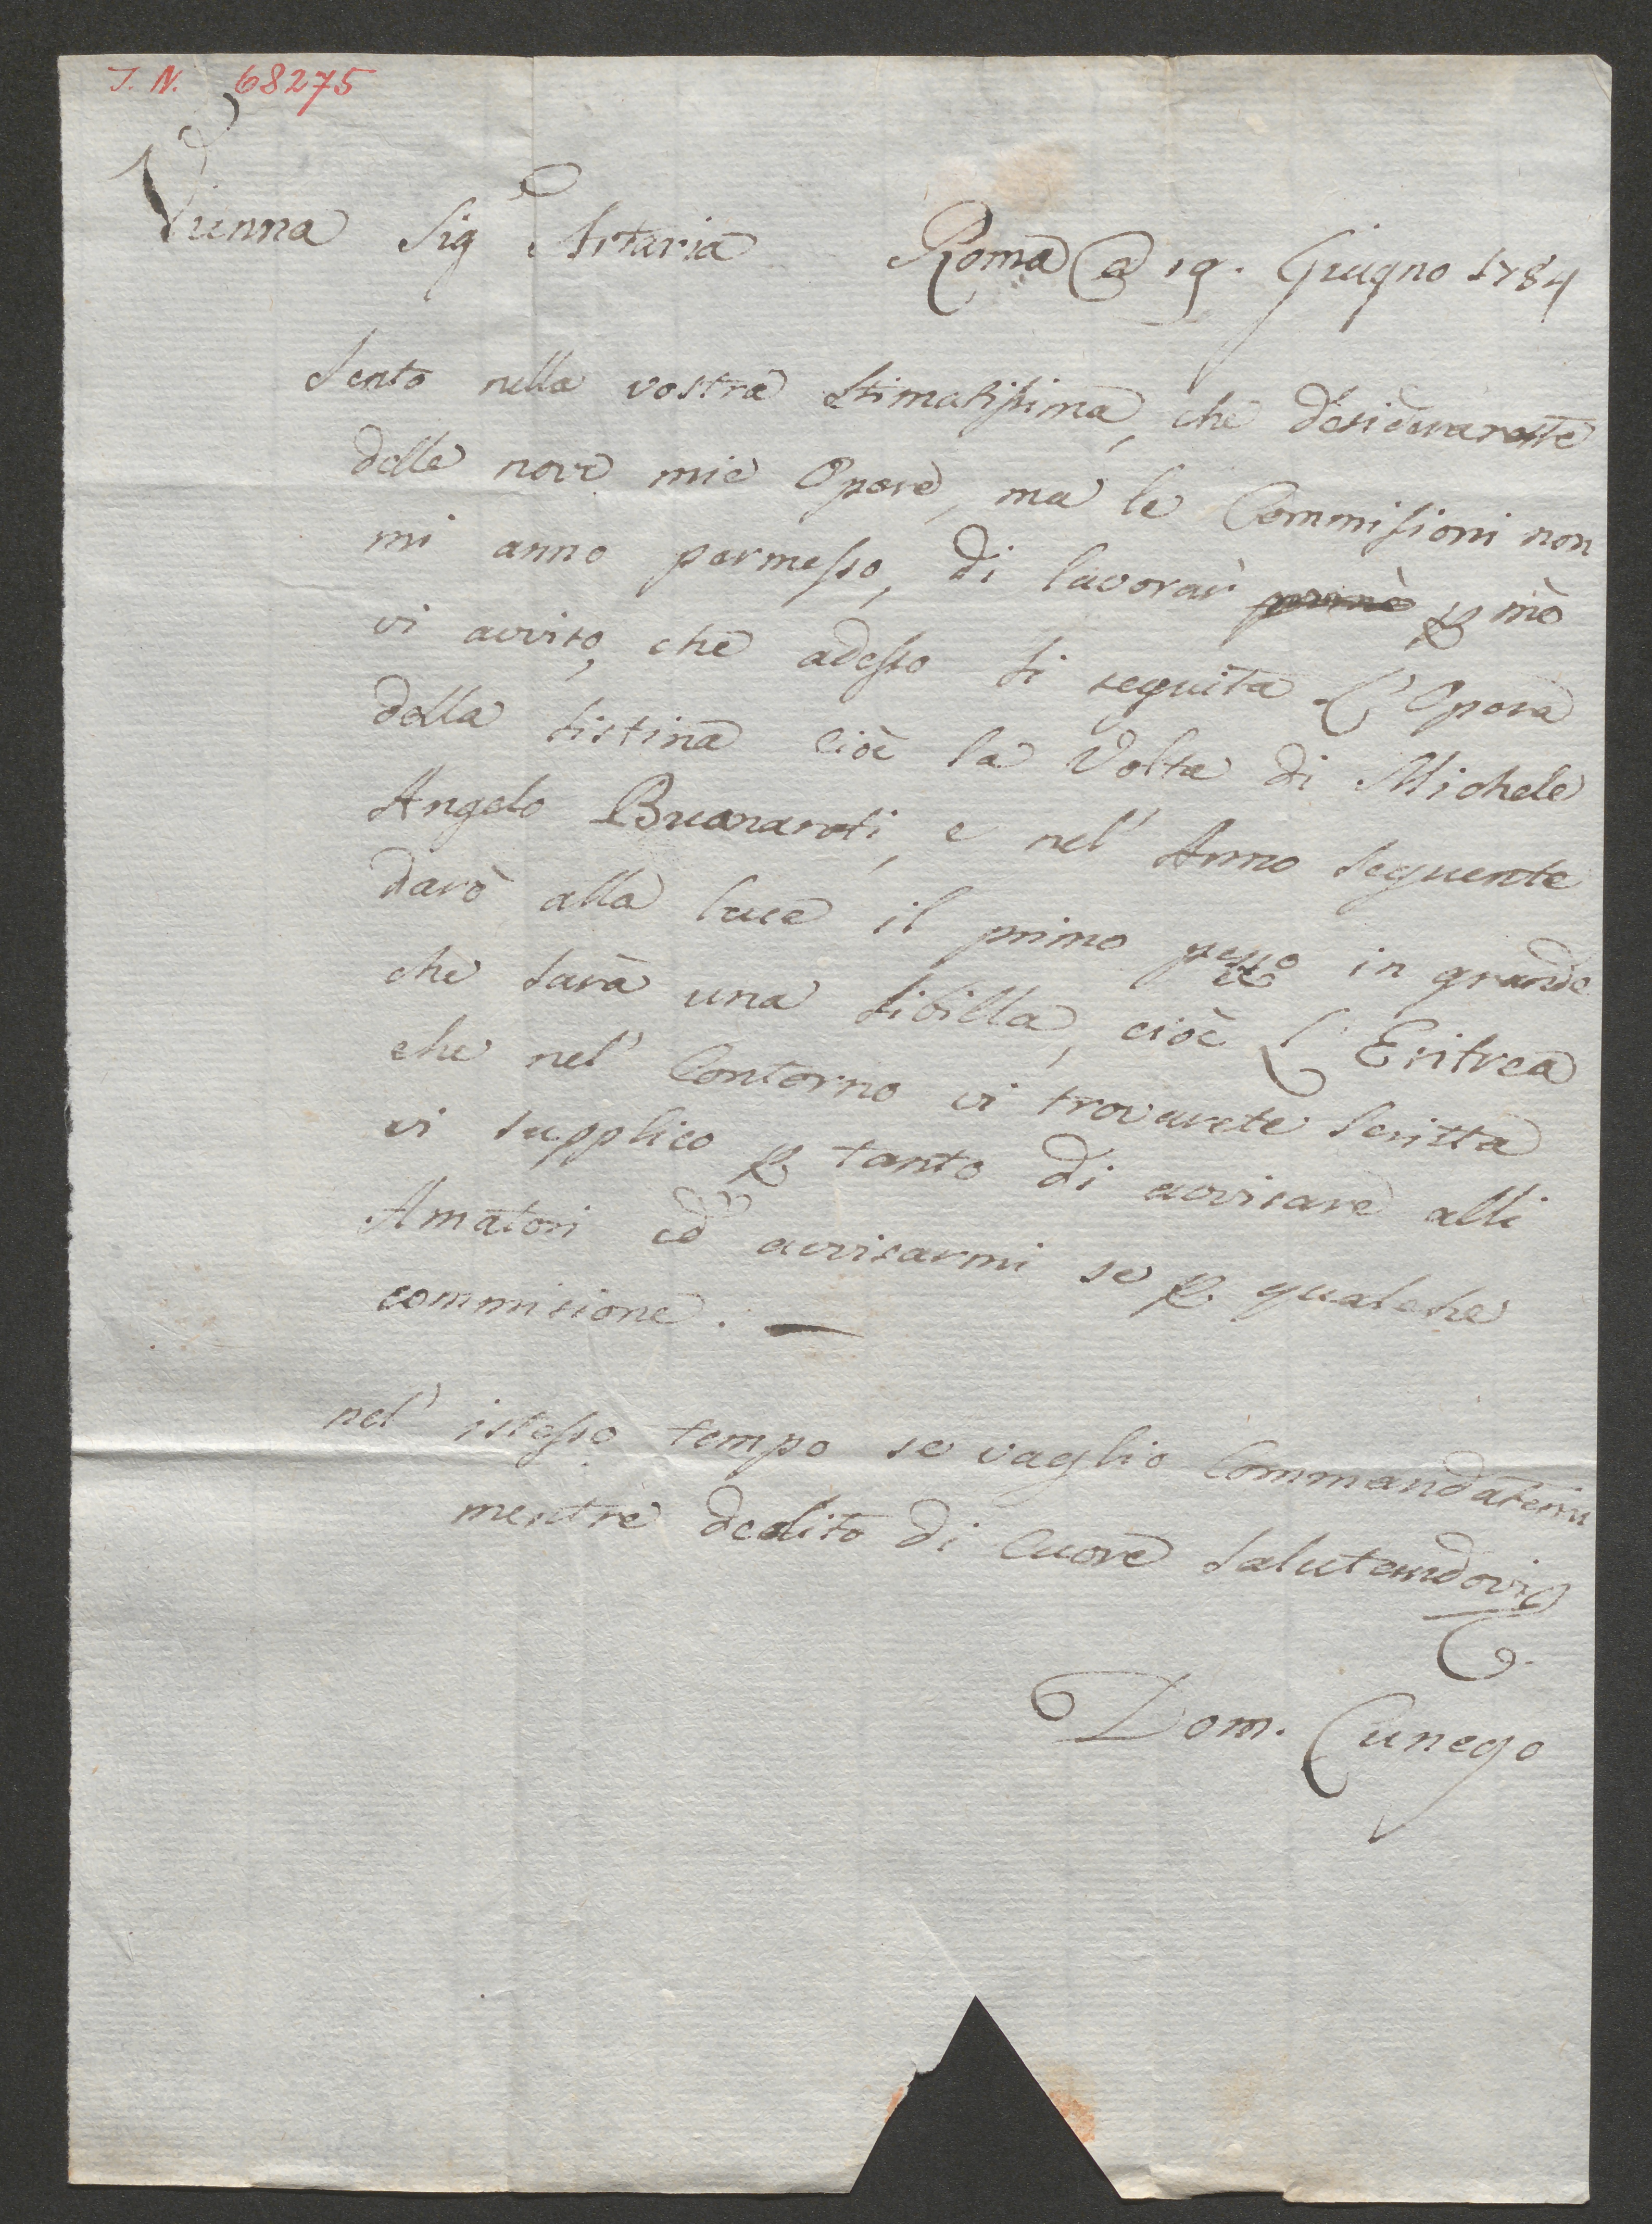 I. N. 68275
Vienna Sig Artaria Roma @ 19. Giugno 1784
Sento nella vostra Stimatissima, che desiderareste
delle nove mie Opere, ma le Commissioni non
mi anno permesso, di lavorar p mè
vi aviso, che adesso si seguita L'Opera
della sistina cioè la Volta di Michele
Angelo Buonaroti, e nel' Anno seguente
darò alla luce il primo pezzo in grande
che sarà una sibilla, cioè L'Eritrea
che nel' Contorno vi troverete scritta
vi supplico p tanto di avvisare alli
Amatori ed avvisarmi se p. qualche
commisione.
nel' istesso tempo se vaglio Commandatemi
mentre dedito di cuore salutandovi
Dom. Cunego